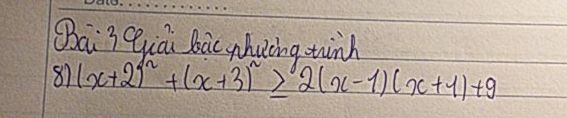 Bài 3 Giải bấc phương trình
8) (x+2)² + (x+3)² ≥ 2(x-1)(x+1)+9